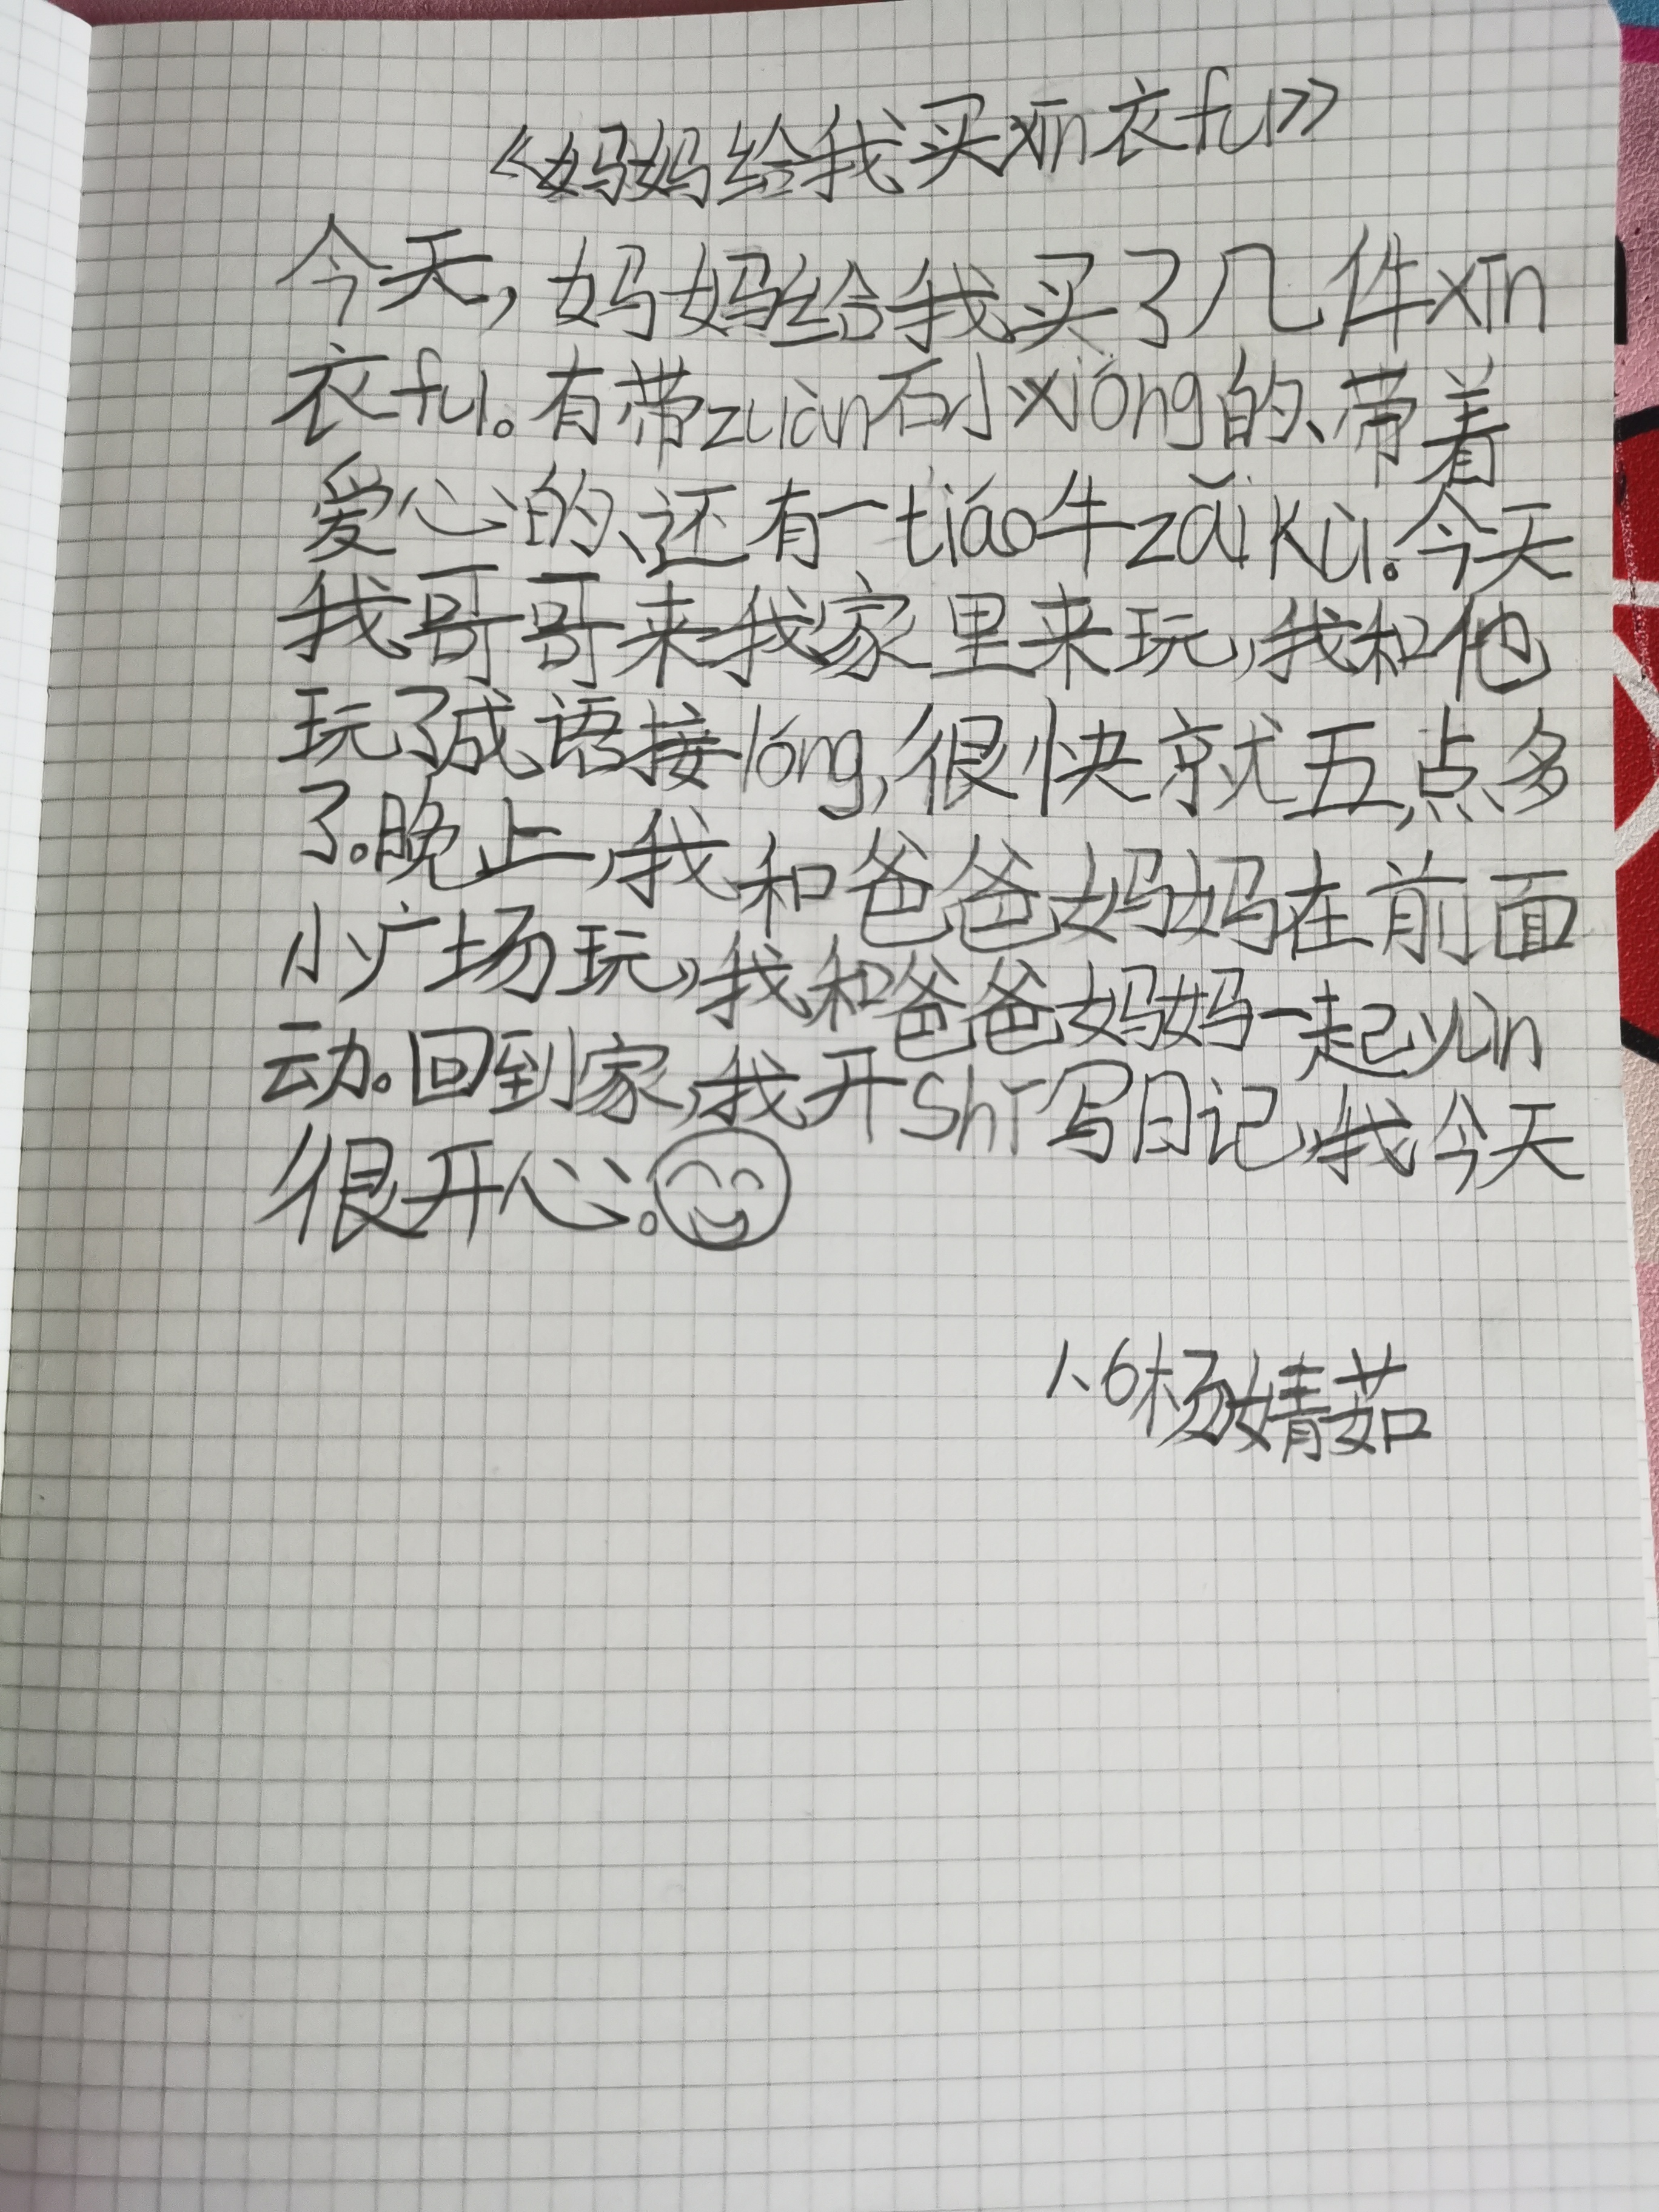 《妈妈给我买xīn衣fu》
今天，妈妈给我买了几件xīn
衣fu。有带zuàn石小xióng的、带着
爱心的、还有一tiáo牛zǎikù。今天
我哥哥来我家里来玩，我和他
玩了成语接lóng，很快就五点多
了。晚上，我和爸爸妈妈在前面
小广场玩，我和爸爸妈妈一起yùn
动。回到家，我开shǐ写日记，我今天
很开心。
1、6杨婧茹